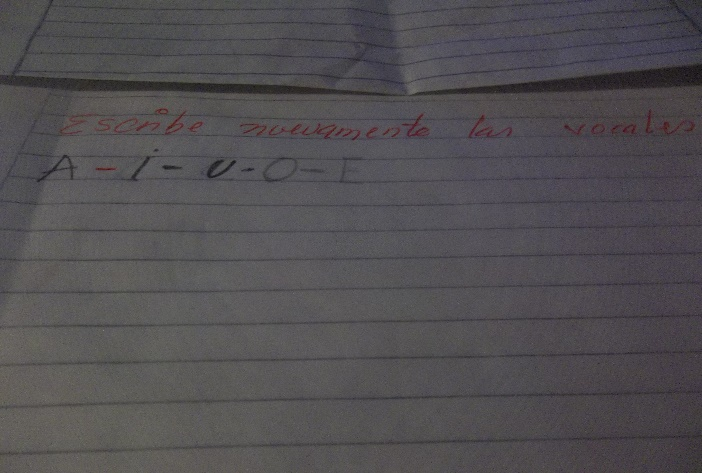 Escribe nuevamente las vocales
A - i - U - O - E